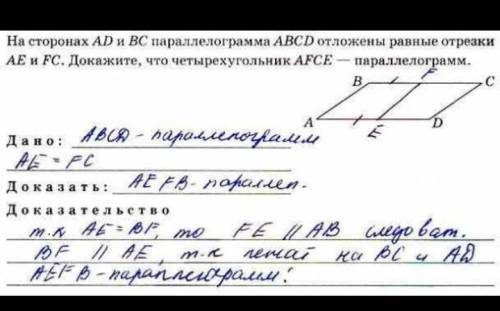 На сторонах AD и BC параллелограмма ABCD отложены равные отрезки
AE и FC. Докажите, что четырехугольник AFCE — параллелограмм.
B F C
A E D
Дано: ABCD - параллепограмм
AE = FC
Доказать: AEFB - параллеп.
Доказательство
т.к AE = BF, то FE // AB следоват.
BF // AE, т.к лежат на BC и AD
AEFB - параллепограмм!